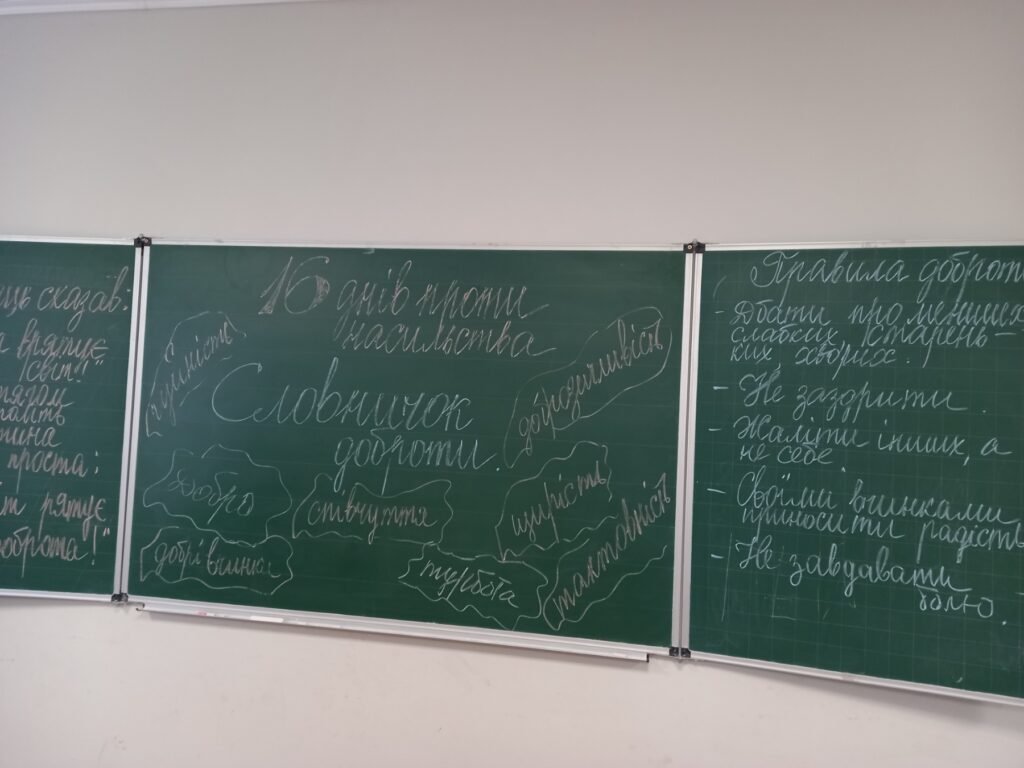 сказав:
врятує
світ!"
проста:
рятує
доброта!"
16 днів проти
насильства
Словничок
доброти.
чуйність
доброзичливість
Добро
співчуття
щирість
тактовність
добрі вчинки
турбота
Правила доброт
- Дбати про менших
слабких стареньких
ких хворих.
- Не заздрити.
- Жаліти інших, а
не себе.
- Своїми вчинками
приносити радість
- Не завдавати
болю.